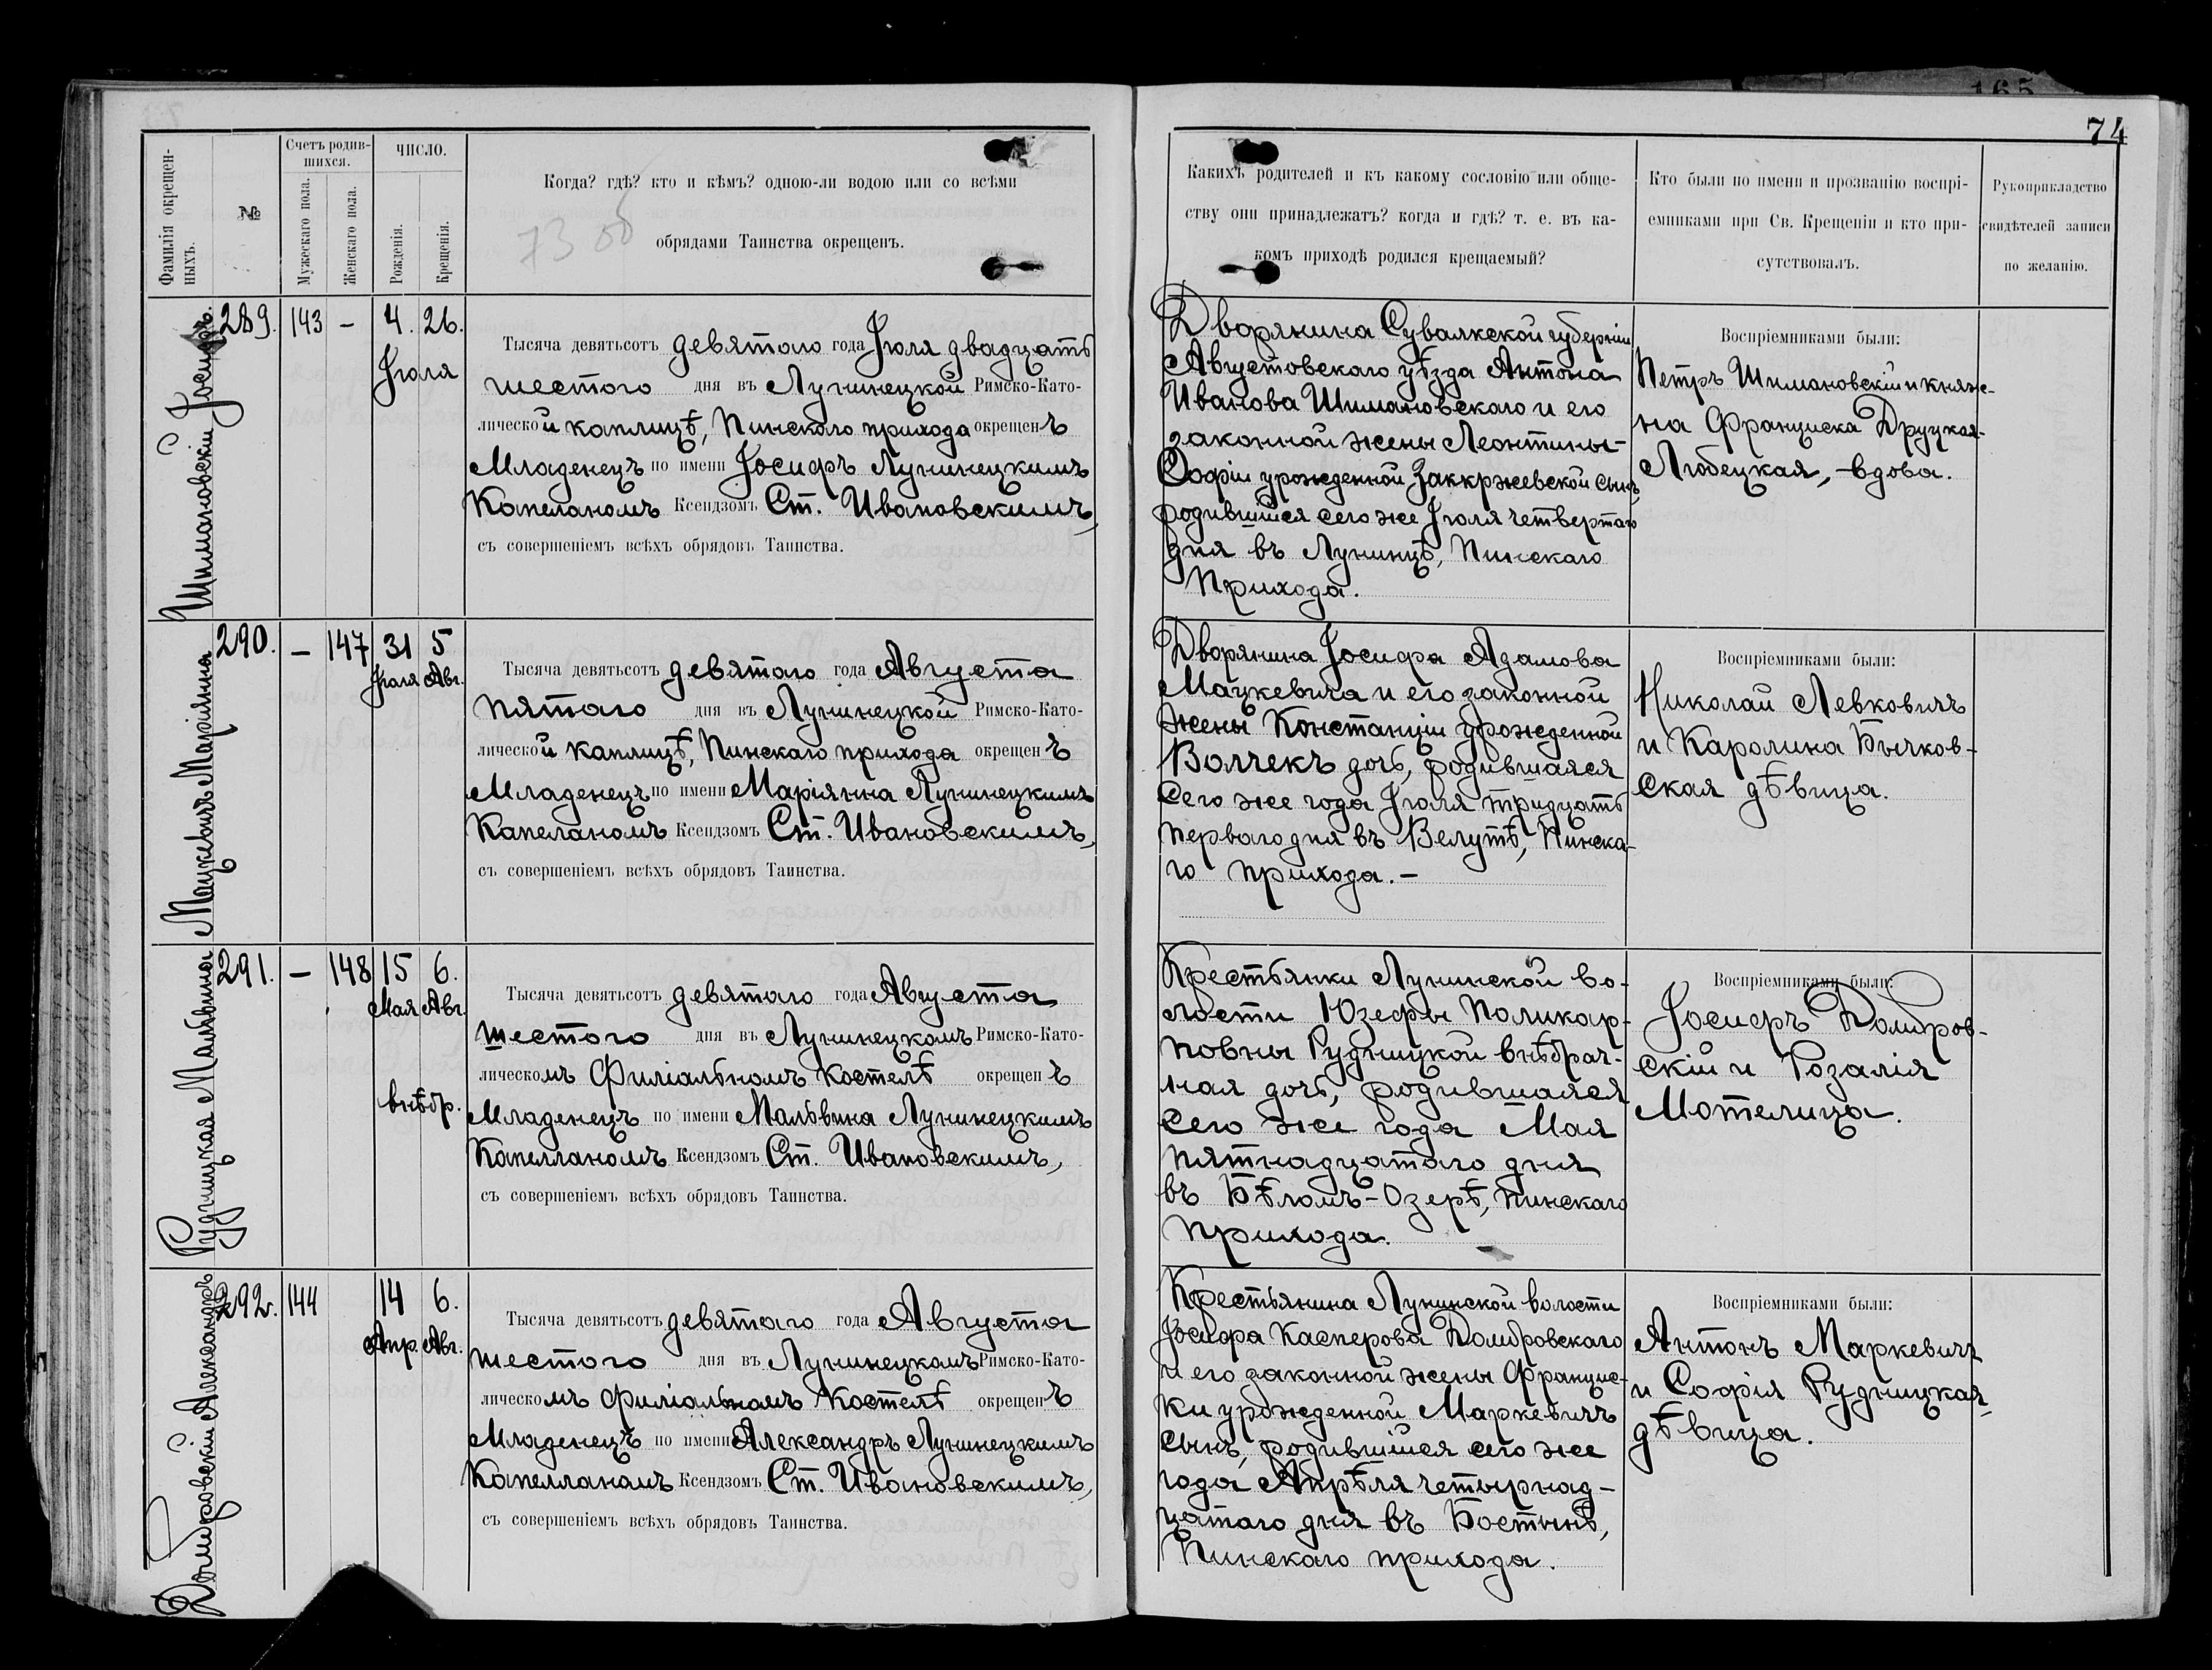 165
74
Фамилія окрещен-
ныхъ.
№
Счетъ родив-
шихся.
Мужескаго пола.
Женскаго пола.
ЧИСЛО.
Рожденія.
Крещенія.
Когда? гдѣ? кто и кѣмъ? одною-ли водою или со всѣми
обрядами Таинства окрещенъ.
Какихъ родителей и къ какому сословію или обще-
ству они принадлежатъ? когда и гдѣ? т. е. въ ка-
комъ приходѣ родился крещаемый?
Кто были по имени и прозванію воспрі-
емниками при Св. Крещеніи и кто при-
сутствовалъ.
Рукоприкладство
свидѣтелей записи
по желанію.
Шимановскій Іосифъ.
289.
143
–
4.
26.
Іюля
Тысяча девятьсотъ девятаго года Іюля двадцать
шестого дня въ Лунинецкой Римско-Като-
лической каплицѣ, Пинскаго прихода окрещенъ
Младенецъ по имени Іосифъ Лунинецкимъ
Капеланомъ Ксендзомъ Ст. Ивановскимъ,
съ совершеніемъ всѣхъ обрядовъ Таинства.
Дворянина Сувалкской губерніи
Августовскаго уѣзда Антона
Иванова Шимановскаго и его
законной жены Леонтины-
Софіи урожденной Заккржевской сынъ,
родившійся сего же Іюля четвертаго
дня въ Лунинцѣ, Пинскаго
Прихода.
Воспріемниками были:
Петръ Шимановскій и княж-
на Франциска Друцкая-
Любецкая, – вдова.
Мацкевичъ Маріянна
290.
–
147
31
5
Іюля Авг.
Тысяча девятьсотъ девятаго года Августа
пятаго дня въ Лунинецкой Римско-Като-
лической каплицѣ, Пинскаго прихода окрещенъ
Младенецъ по имени Маріянна Лунинецкимъ
Капеланомъ Ксендзомъ Ст. Ивановскимъ,
съ совершеніемъ всѣхъ обрядовъ Таинства.
Дворянина Іосифа Адамова
Мацкевича и его законной
жены Констанціи урожденной
Волчекъ дочь, родившаяся
сего же года Іюля тридцать
перваго дня въ Велутѣ, Пинска-
го прихода. –
Воспріемниками были:
Николай Левковичъ
и Каролина Бычков-
ская дѣвица.
Рудницкая Мальвина
291.
–
148
15
6.
Мая Авг.
внѣбр.
Тысяча девятьсотъ девятаго года Августа
шестого дня въ Лунинецкомъ Римско-Като-
лическомъ Филіальномъ Костелѣ окрещенъ
Младенецъ по имени Мальвина Лунинецкимъ
Капелланомъ Ксендзомъ Ст. Ивановскимъ,
съ совершеніемъ всѣхъ обрядовъ Таинства.
Крестьянки Лунинской во-
лости Юзефы Поликар-
повны Рудницкой внѣбрач-
ная дочь, родившаяся
сего же года Мая
пятнадцатаго дня
въ Бѣломъ-Озерѣ, Пинскаго
прихода.
Воспріемниками были:
Іосифъ Домбров-
скій и Розалія
Мотелица.
Домбровскій Александръ
292.
144
14
6.
Апр. Авг.
Тысяча девятьсотъ девятаго года Августа
шестого дня въ Лунинецкомъ Римско-Като-
лическомъ филіальномъ Костелѣ окрещенъ
Младенецъ по имени Александръ Лунинецкимъ
Капелланомъ Ксендзомъ Ст. Ивановскимъ,
съ совершеніемъ всѣхъ обрядовъ Таинства.
Крестьянина Лунинской волости
Іосифа Касперова Домбровскаго
и его законной жены Францис-
ки урожденной Маркевичъ
сынъ, родившійся сего же
года Апрѣля четырнад-
цатаго дня въ Бостынѣ,
Пинскаго прихода.
Воспріемниками были:
Антонъ Маркевичъ
и Софія Рудницкая,
дѣвица.